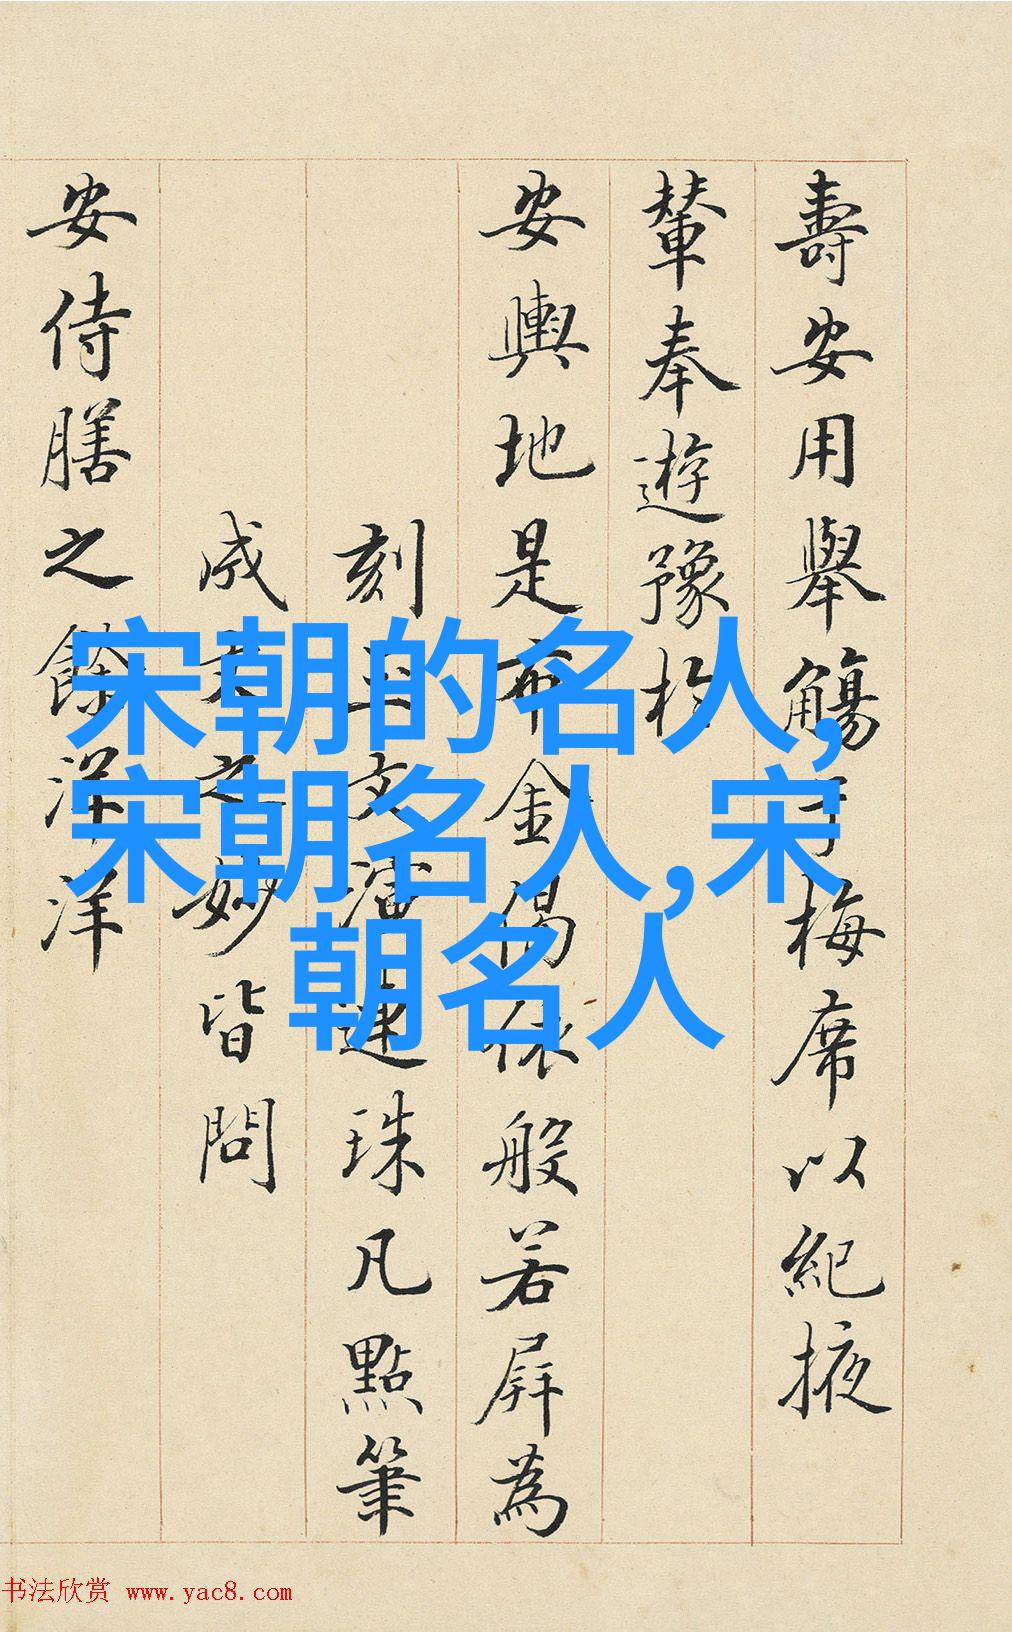 壽安用舉觴于梅席以紀掖
輦奉遊豫於
安輿地是布金偈依般若屏為
刻文連珠凡點筆
成之妙皆問
安侍膳之餘洋洋
宋朝的名人,
宋朝名人,宋
朝名人
书法欣赏 www.yac8.com